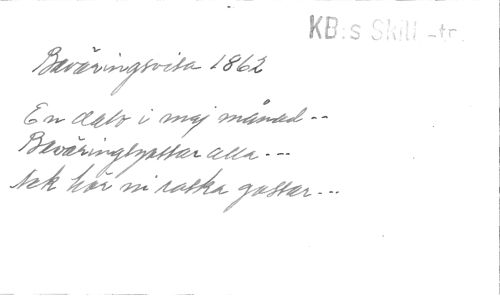 KB:s Skill-tr.
Beväringsvisa 1862
En dalv i maj månad --
Beväringsgossar alla ---
Ack hör ni raska gossar ---